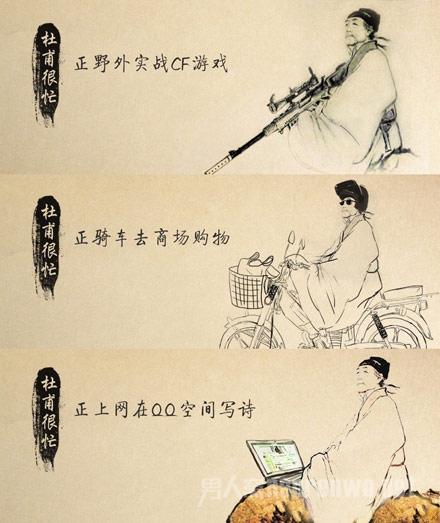 杜甫很忙
正野外实战CF游戏
杜甫很忙
正骑车去商场购物
杜甫很忙
正上网在QQ空间写诗